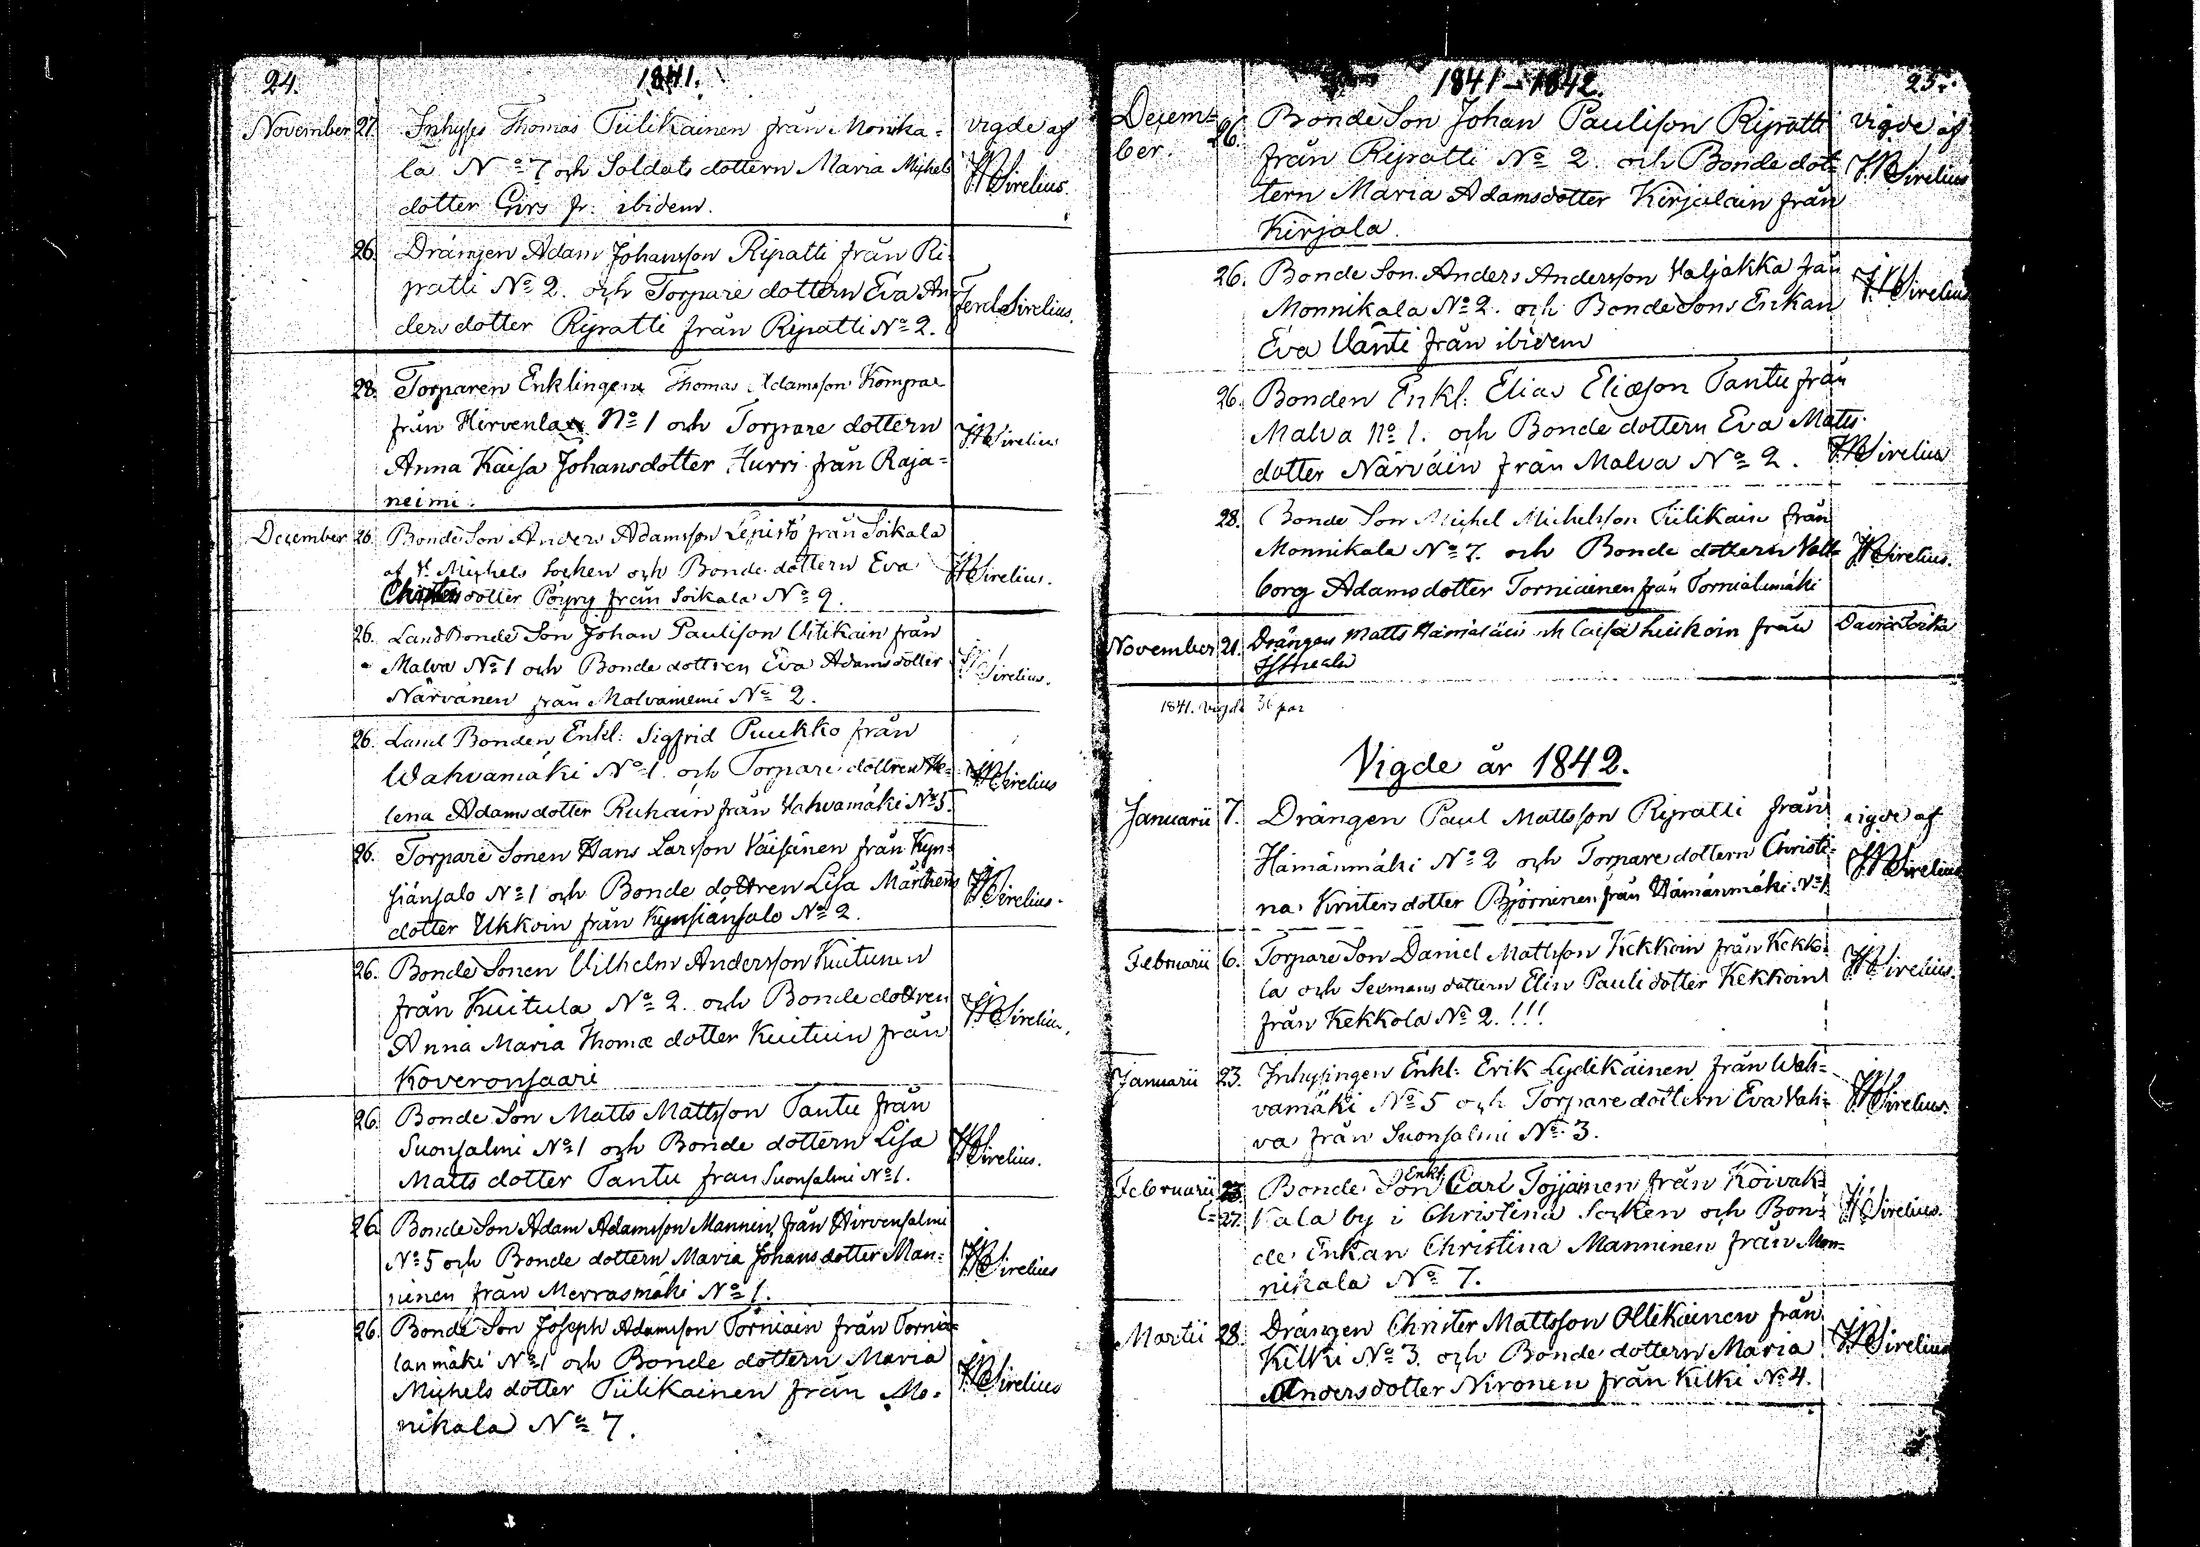 24. 1841.
November 27. Inhyses Thomas Tiilikainen från Monika= vigde af
la No 7 och Soldats dottern Maria Michels JWSirelius.
dotter Girs fr: ibidem.
26. Drängen Adam Johansson Ripatti från Ri=
patti No 2. och Torpare dottern Eva An= Ferd. Sirelius.
ders dotter Ripatti från Ripatti No 2.
28. Torparen Enklingen Thomas Adamsson Komprae
från Hirvenlax No 1 och Torpare dottern JWSirelius
Anna Kaisa Johansdotter Hurri från Raja=
neimi.
December 26. Bonde Son Anders Adamsson Lepistö från Soikala
af St Michels Socken och Bonde dottern Eva JWSirelius.
Christersdotter Pöyry från Soikala No 9.
26. Land Bonde Son Johan Paulison Vitikain från
Malva No 1 och Bonde dottren Eva Adamsdotter JWSirelius.
Närvänen från Malvaniemi No 2.
26. Land Bonden Enkl: Sigfrid Puukko från
Wahvamäki No 1. och Torpare dottren He= JWSirelius
lena Adamsdotter Ruhain från Vahvamäki No 5.
26. Torpare Sonen Hans Larsson Väisänen från Kyn=
siänsalo No 1 och Bonde dottren Lisa Mårthens JWSirelius.
dotter Ukkoin från Kynsiänsalo No 2.
26. Bonde Sonen Vilhelm Andersson Kuitunen
från Kuitula No 2. och Bonde dottren JWSirelius.
Anna Maria Thomæ dotter Kuituin från
Koveronsaari
26. Bonde Son Matts Mattsson Tantu från
Suonsalmi No 1 och Bonde dottern Lisa JWSirelius.
Matts dotter Tantu fran Suonsalmi No 1.
26. Bonde Son Adam Adamsson Mannin från Hirvensalmi
No 5 och Bonde dottern Maria Johans dotter Man= JWSirelius
ninen från Merrasmäki No 1.
26. Bonde Son Joseph Adamsson Torniain från Tornia=
lanmäki No 1 och Bonde dottern Maria JWSirelius
Michels dotter Tiilikainen från Mo=
nikala No 7.
1841–1842. 25.
Decem=
ber. 26. Bonde Son Johan Paulison Ripatti vigde af
från Ripatti No 2. och Bonde dot= JWSirelius
tern Maria Adamsdotter Kirjalain från
Kirjala.
26. Bonde Son Anders Andersson Valjakka från JWSirelius
Monnikala No 2. och Bonde Sons Enkan
Eva Vänti från ibidem
26. Bonden Enkl: Elias Eliæson Tantu från
Malva No 1. och Bonde dottern Eva Matts
dotter Närväin från Malva No 2. JWSirelius
28. Bonde Son Michel Michelsson Tiilikain från
Monnikala No 7. och Bonde dottern Vall= JWSirelius.
borg Adamsdotter Torniainen från Tornialamäki
November 21. Drängen Matts Hämäläin och Caisa Liukoin från David Toika
1841. Vigde 36 par
Vigde år 1842.
Januarii 7. Drängen Paul Mattsson Ripatti från vigde af
Hämänmäki No 2 och Torpare dottern Christi= JWSirelius
na Kristersdotter Björninen från Hämänmäki No 1
Februarii 6. Torpare Son Daniel Mattsson Kekkoin från Kekko= JWSirelius.
la och Sexmans dottern Elin Pauli dotter Kekkoin
från Kekkola No 2. !!!
Januarii 23. Inhysingen Enkl: Erik Lydikäinen från Wah=
vamäki No 5 och Torpare dottern Eva Vah= JWSirelius.
va från Suonsalmi No 3.
Februarii 27. Bonde Son Enkl: Carl Tojjainen från Koivak=
kala by i Christina Socken och Bon= JWSirelius.
de Enkan Christina Manninen från Mon=
nikala No 7.
Martii 28. Drängen Christer Mattsson Ollikainen från
Kilki No 3. och Bonde dottern Maria JWSirelius
Andersdotter Nironen från Kilki No 4.